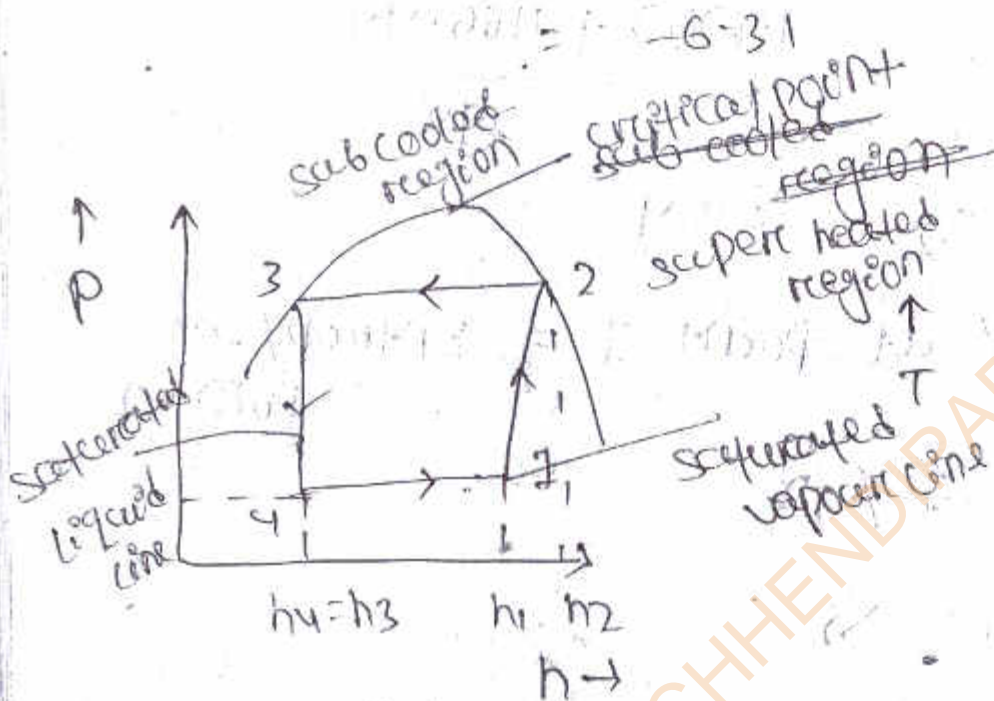 = -6.31
subcooled
region
critical point
sub cooled
region
super heated
region
↑
P
3
2
↑
T
saturated
liquid
line
4
1
saturated
vapour line
h4=h3
h1 h2
h→
CHHENDIPADA